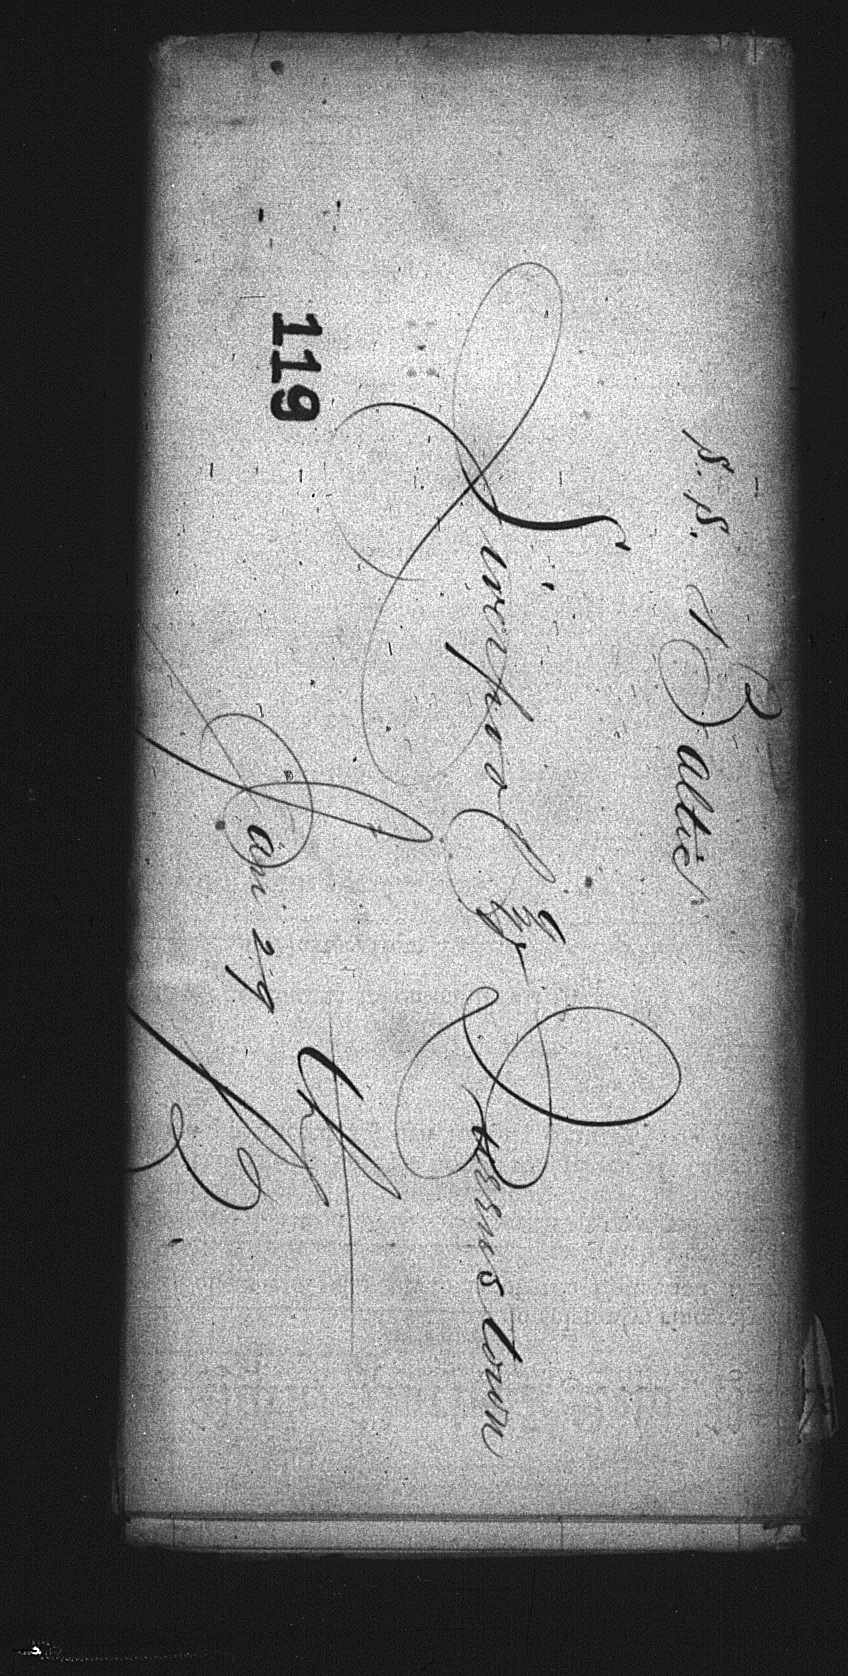 S. S. Baltic
Liverpool & Queenstown
Jan 29
119